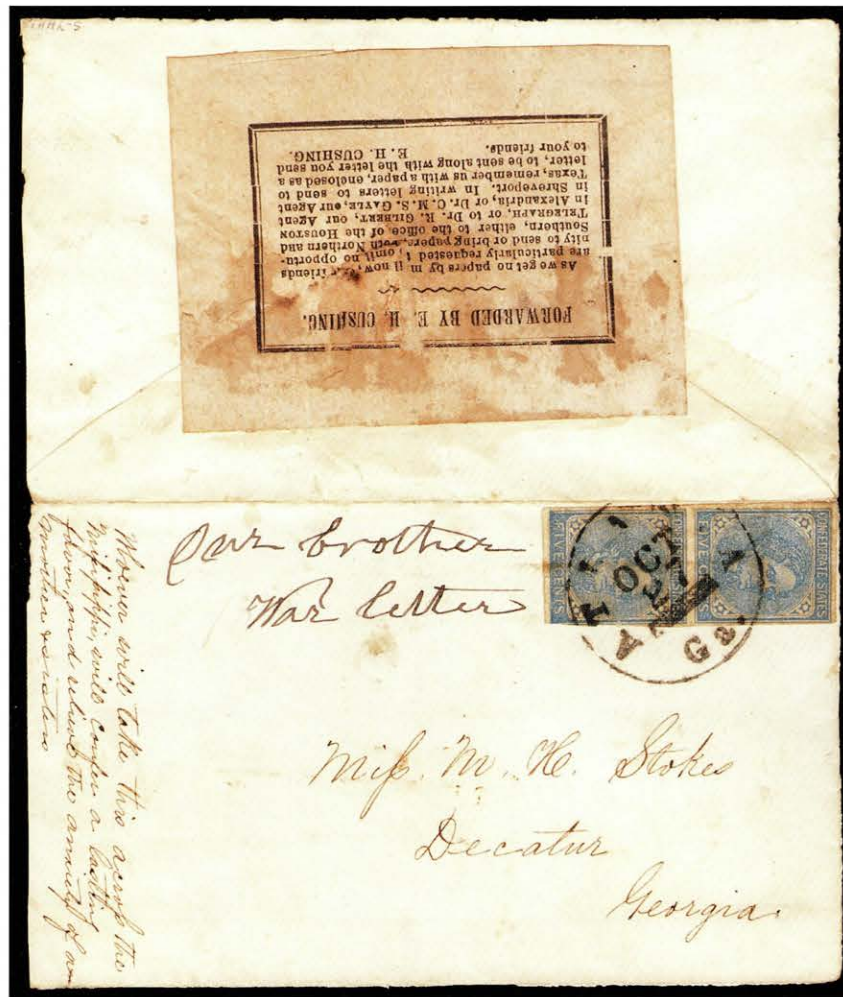 FORWARDED BY E. H. CUSHING.
As we get no papers by mail now, our friends
are particularly requested to omit no opportu-
nity to send or bring papers, both Northern and
Southern, either to the office of the HOUSTON
TELEGRAPH, or to Dr. R. GILBERT, our Agent
in Alexandria, or Dr. C. M. S. GAYLE, our Agent
in Shreveport. In writing letters to send to
Texas, remember us with a paper, enclosed as a
letter, to be sent along with the letter you send
to your friends. E. H. CUSHING.
Our brother
War letter
CONFEDERATE STATES
FIVE CENTS
CONFEDERATE STATES
FIVE CENTS
ATLANTA Ga.
OCT
Miſs. M. H. Stokes
Decatur
Georgia.
Whoever will take this acroſs the
Miſsiſsippi, will confer a lasting
favor, and relieve the anxiety of a
mother & sisters